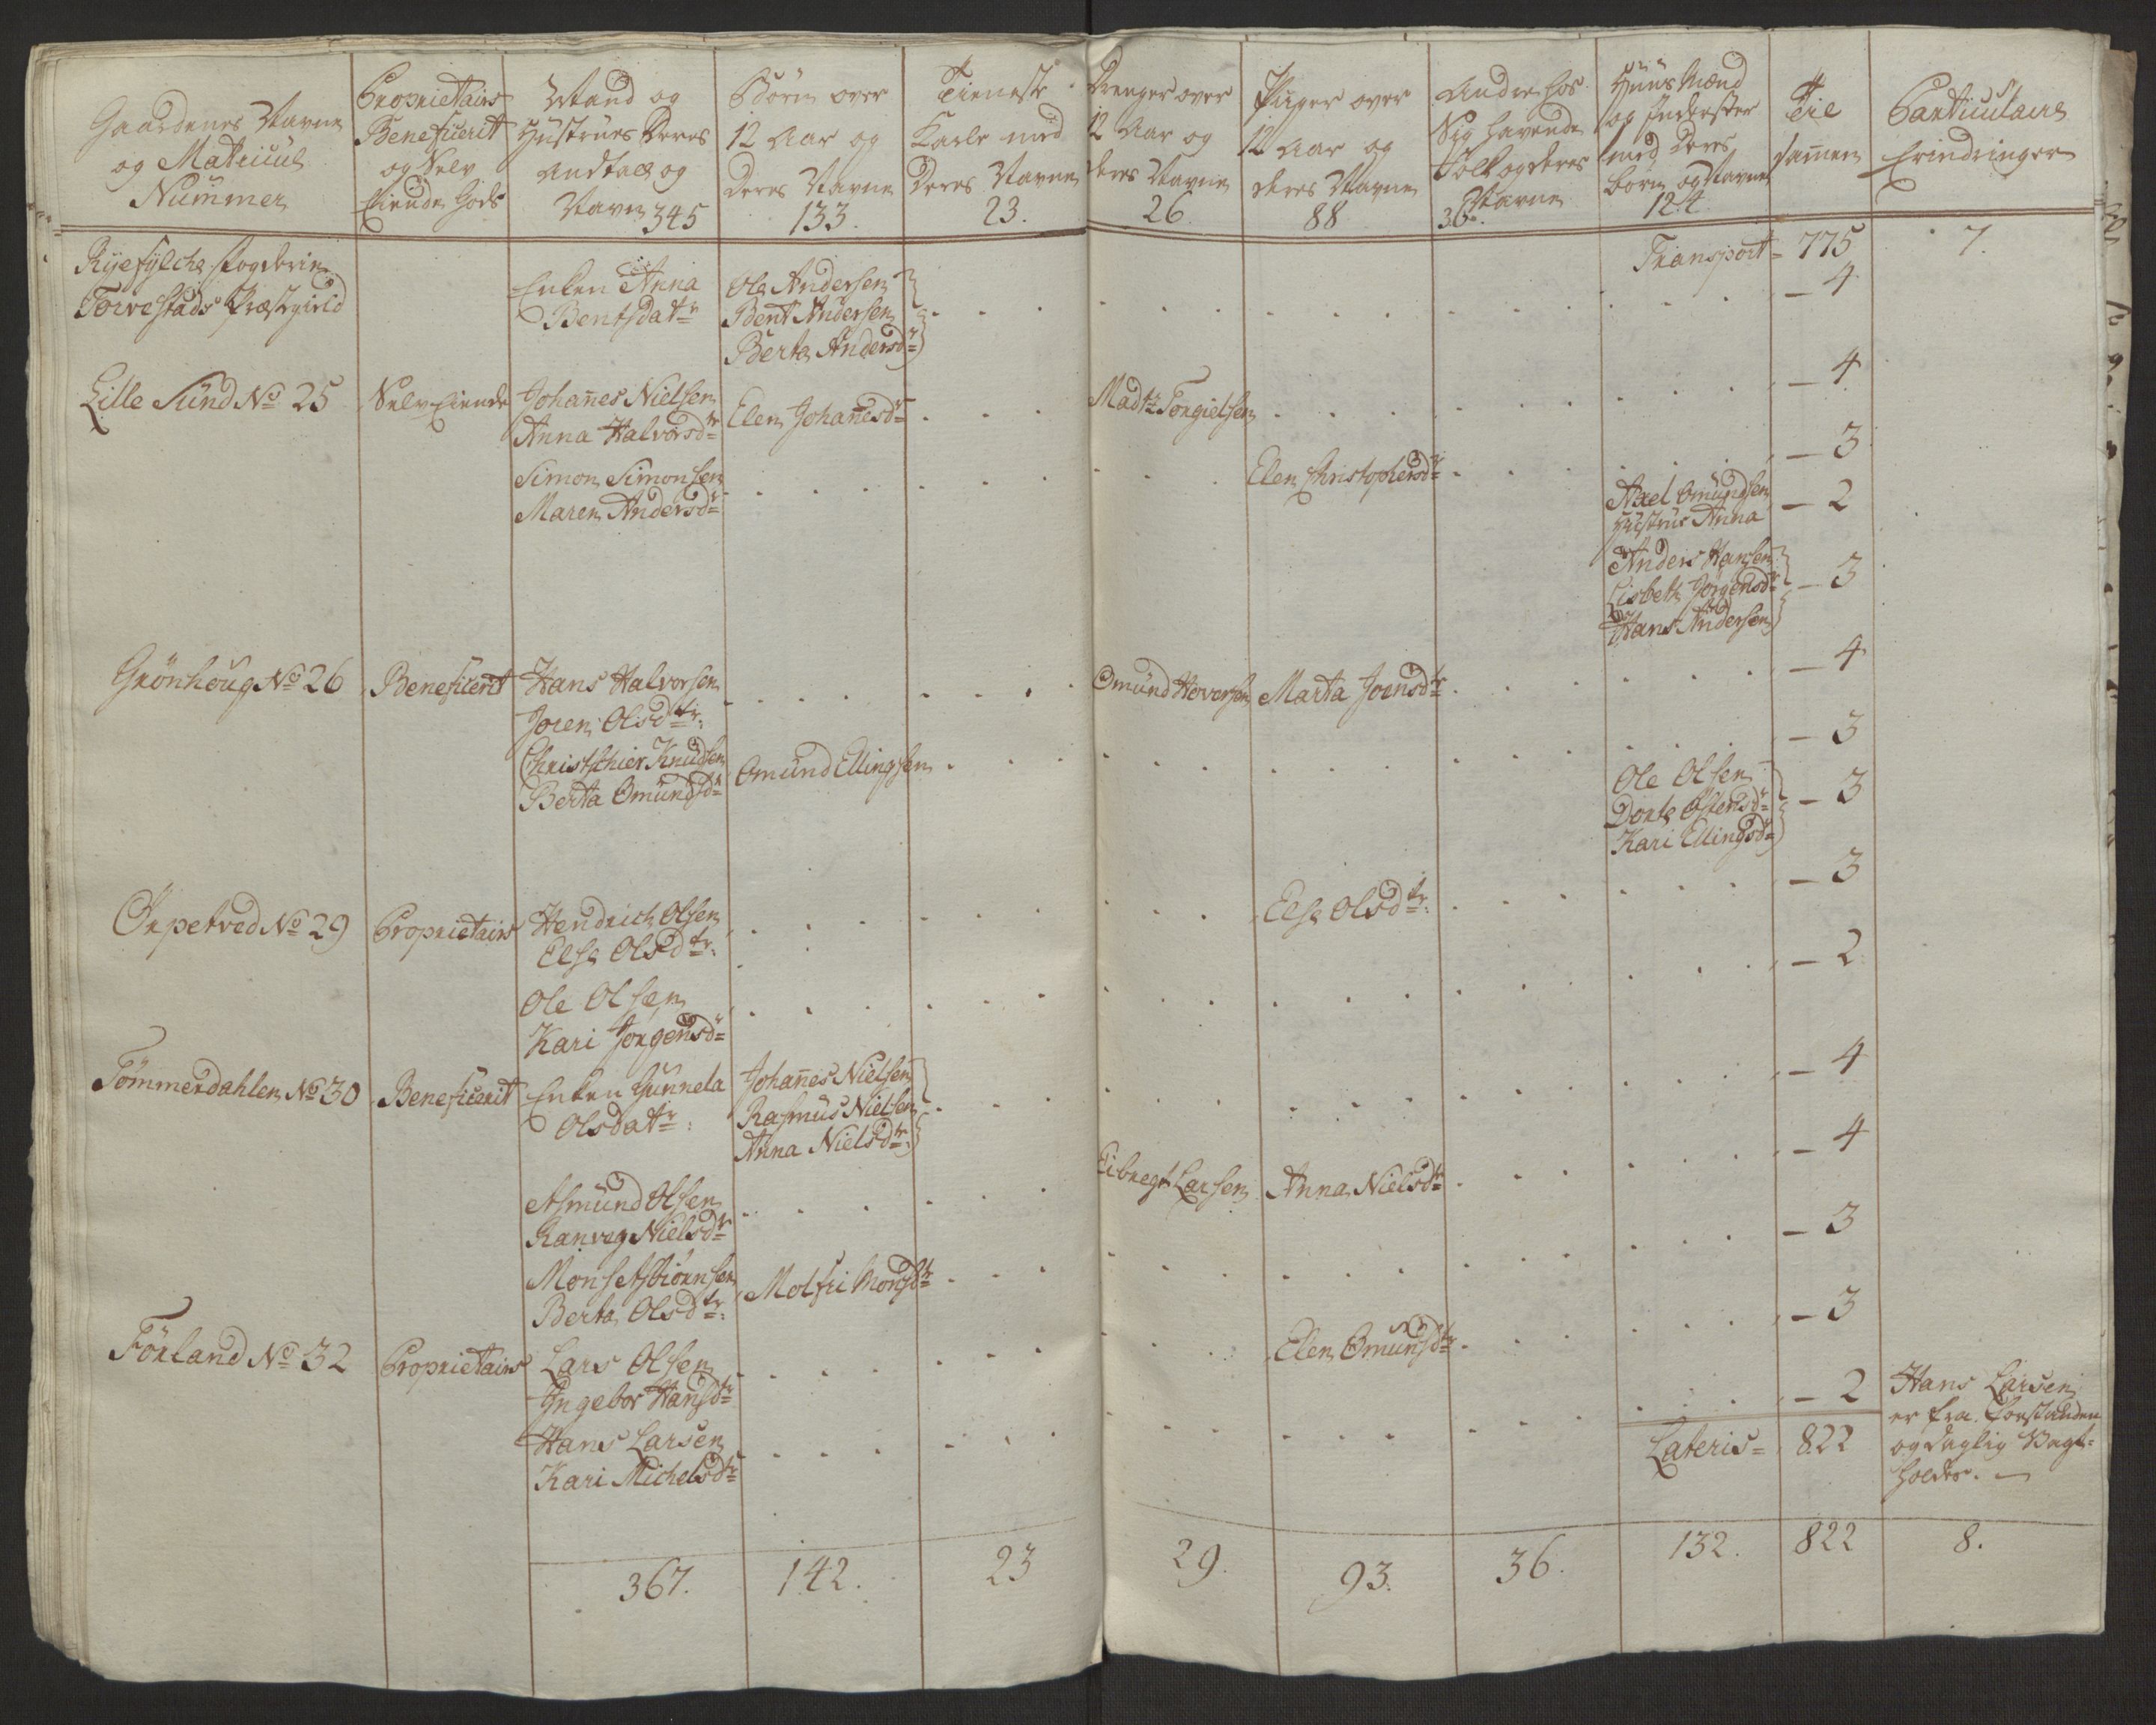 Gaardenes Navne
og Matricul
Nummer
Proprietairs
Beneficerit
og Selv
Eiende Gods
Mand og
Hustrues Deres
Andtall og
Navn 345
Börn over
12 Aar og
Deres Navne
133.
Tieneste
Karle med
Deres Navne
23.
Drenger over
12 Aar og
deres Navne
26
Piiger over
12 Aar og
deres Navne
88
Andre hos
Sig havende
Folk og deres
Navne
36.
Huus Mænd
og Inderster
med Deres
börn og Navne
124
Til
sammen
Particulaire
Erindringer
Ryefylche fogderie
Torvestads Præstegield
Enken Anna
Bentsdatr
Ole Andersen
Bent Andersen
Berta Andersdr
Transport = 775
7.
– 4
Lille Sund No 25
Selv Eiende
Johanes Nielsen
Anna Halvorsdr
Elen Johanesdr
Mads Torgielsen
– 4
Simon Simonsen
Maren Andersdr
Elen Christophersdr
– 3
Axel Omundsen
Hustrue Anna
– 2
Anders Hansen
Lisbeth Jörgensdr
Hans Andersen
– 3
Grönhoug No 26
Beneficerit
Hans Halvorsen
Joren Olsdtr:
Omund Hoversen
Marta Joensdr
– 4
Christchier Knudsen
Berta Omundsdr
Omund Ellingsen
– 3
Ole Olsen
Dorte Ostensdr
Kari Ellingsdr
– 3
Örpetved No 29
Proprietairs
Hendrich Olsen
Else Olsdtr:
Else Olsdtr:
– 3
Ole Olsen
Kari Jörgensdr
– 2
Tömmerdahlen No 30
Beneficerit
Enken Gunnela
Olsdatr:
Johanes Nielsen
Rasmus Nielsen
Anna Nielsdtr:
– 4
Asmund Olsen
Ranveg Nielsdtr
Eibregt Larsen
Anna Nielsdtr
– 4
Mons Asbiörnsen
Berta Olsdtr:
Molfri Monsdtr
– 3
Förland No 32
Proprietairs
Lars Olsen
Ingebor Hansdtr
Elen Omunsdtr
– 3
Hans Larsen
Kari Michelsdtr
– 2
Hans Larsen
er fra Forstanden
og daglig Vagt-
holdes. –
Lateris = 822
367.
142.
23
29.
93.
36.
132.
822
8.